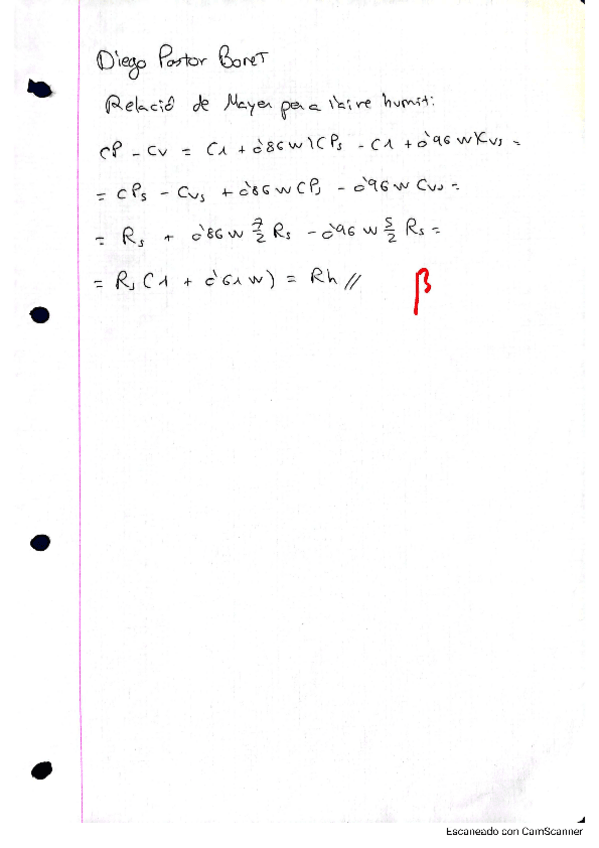 Diego Pastor Bonet
Relació de Mayer per a l'aire humit:
CP - Cv = (1 + 0'86 w) CPs - (1 + 0'96 w) Cvs =
= CPs - Cvs + 0'86 w CPs - 0'96 w Cvs =
= Rs + 0'86 w 7/2 Rs - 0'96 w 5/2 Rs =
= Rs (1 + 0'61 w) = Rh //
β
Escaneado con CamScanner